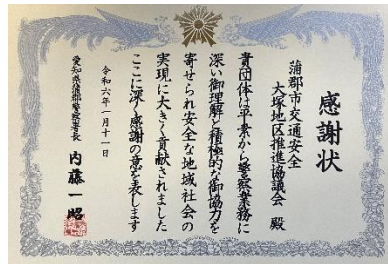 感謝状
蒲郡市交通安全
大塚地区推進協議会 殿
貴団体は平素から警察業務に
深い御理解と積極的な御協力を
寄せられ安全な地域社会の
実現に大きく貢献されました
ここに深く感謝の意を表します
令和六年一月十一日
愛知県蒲郡警察署長 内藤一昭